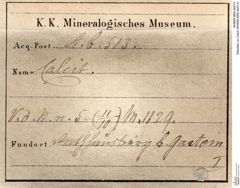 K. K. Mineralogisches Museum.
Acq. Post. A. b. 513.
Name Calcit.
V. d. M. n. 5 (11/10) M. 1129.
Fundort b. Gastein
I